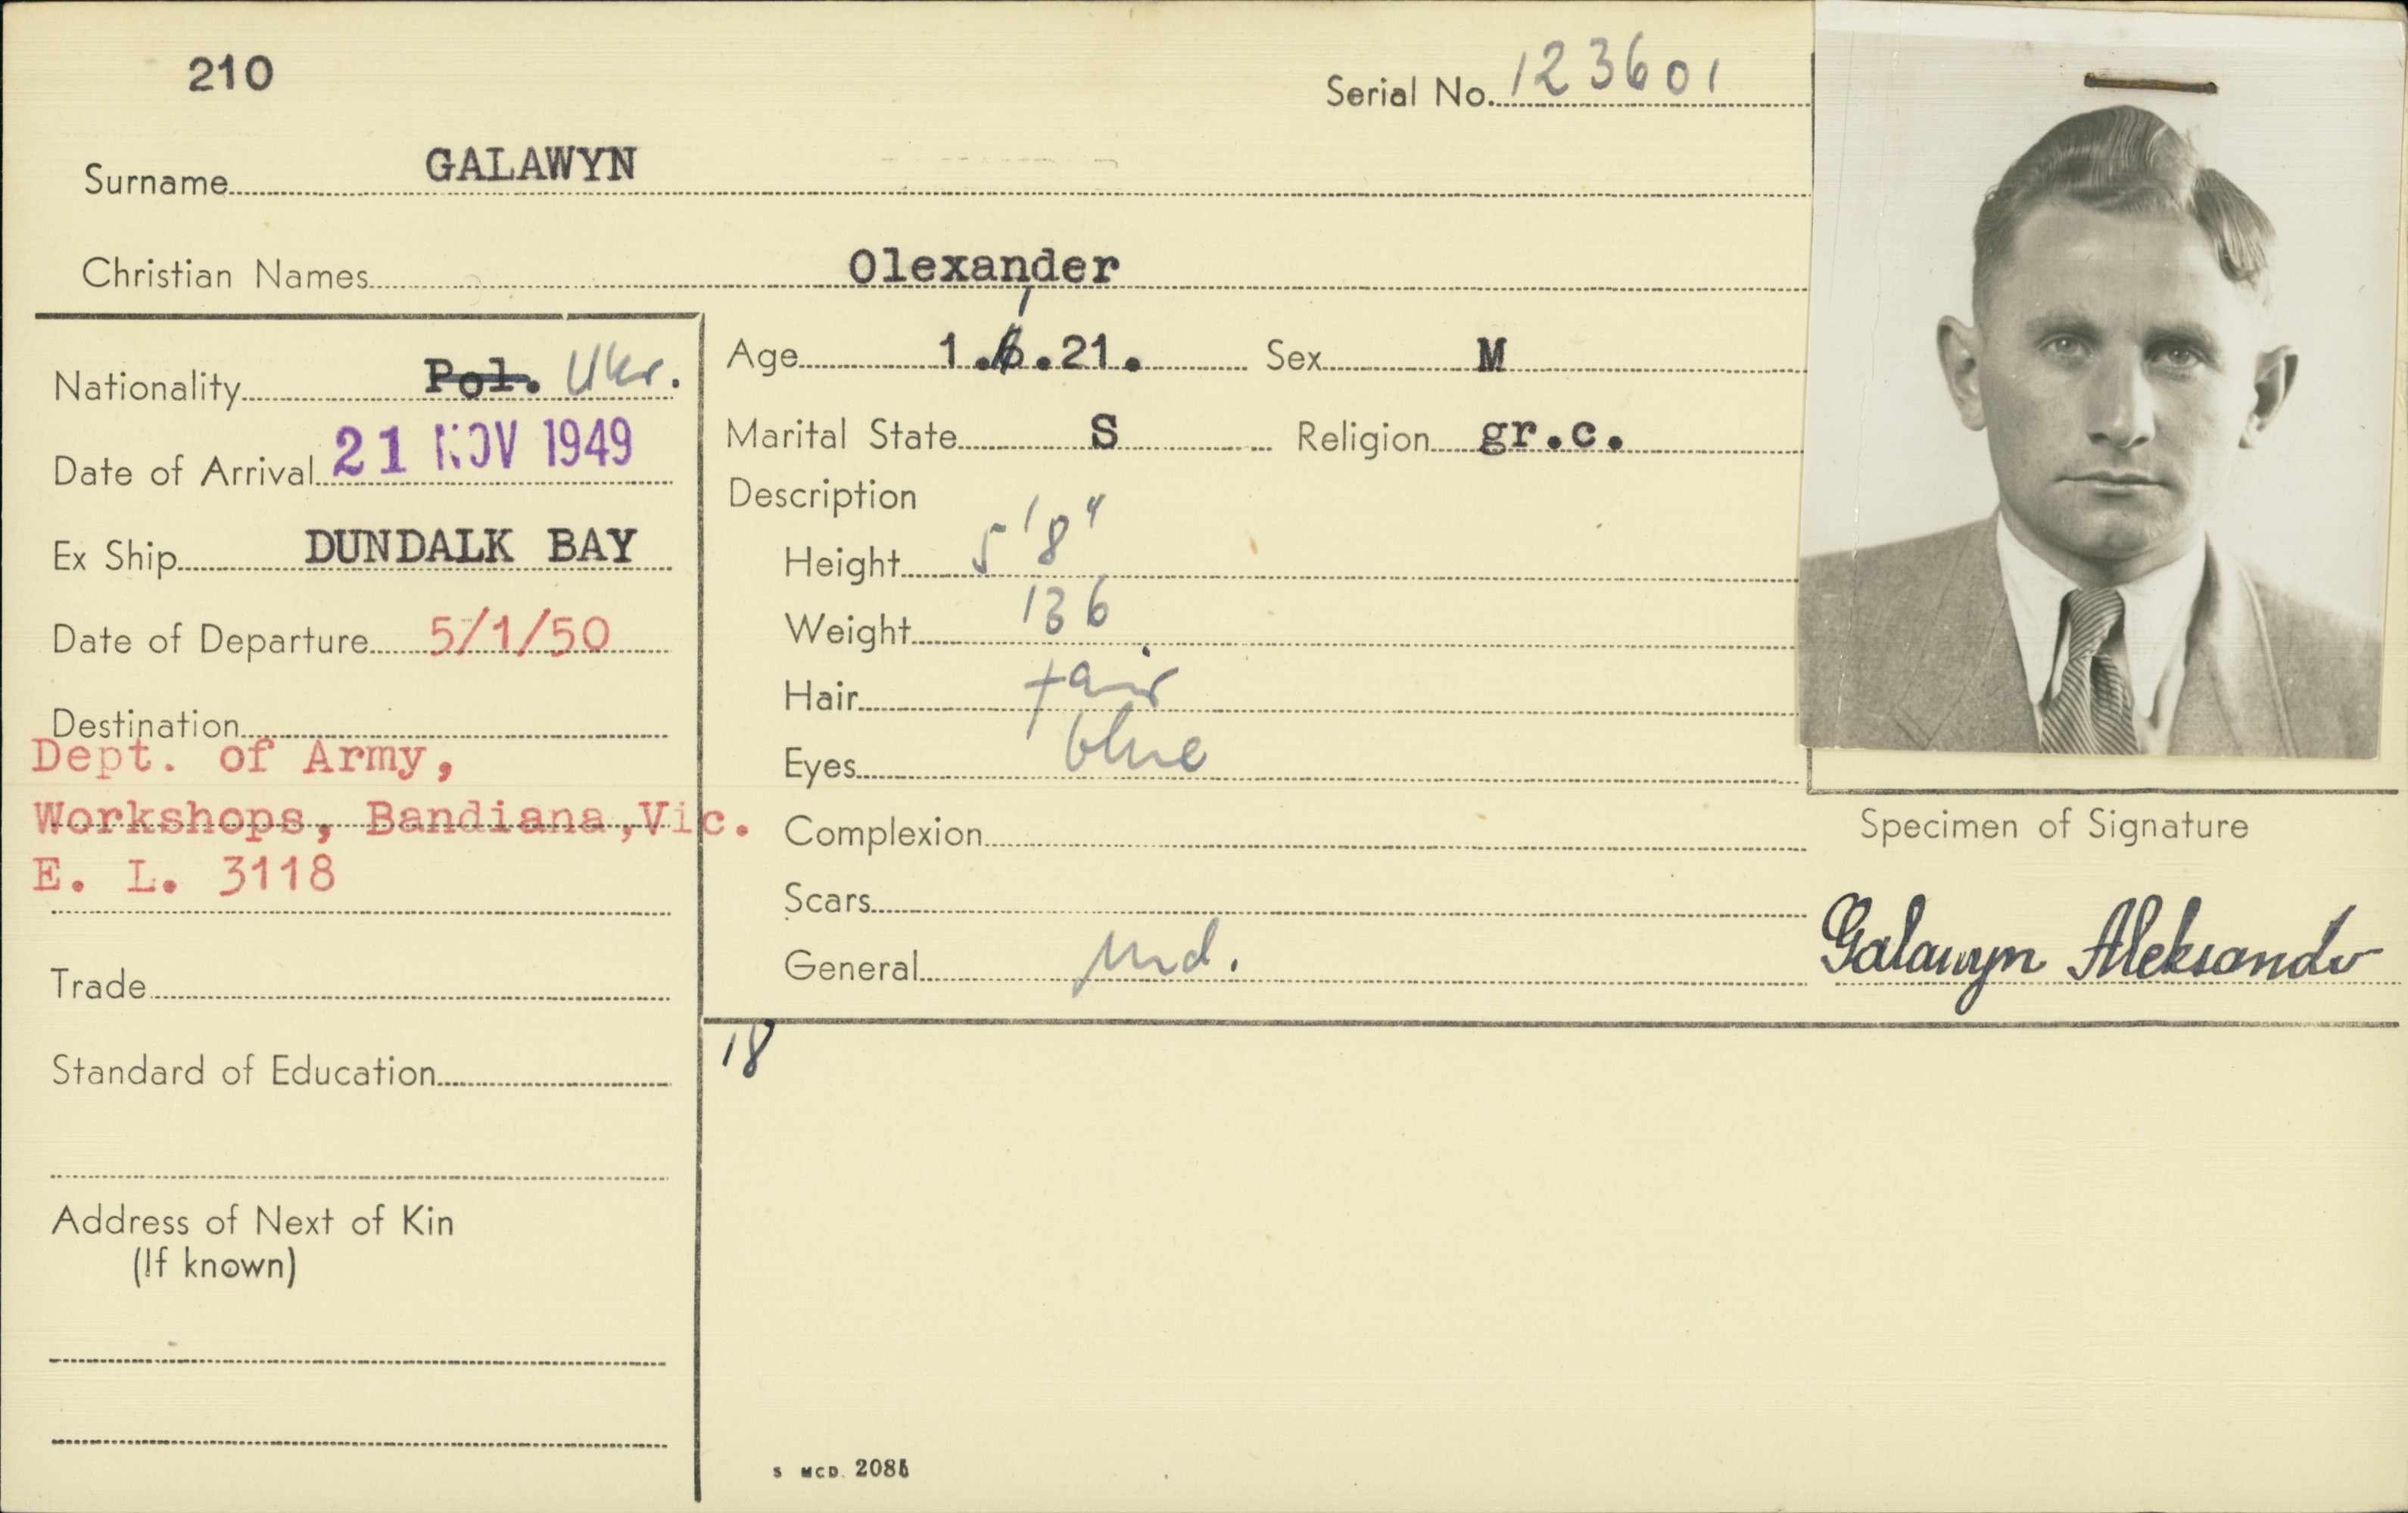 210
Serial No. 123601
Surname GALAWYN
Christian Names Olexander
Nationality Pol. Ukr.
Date of Arrival 21 NOV 1949
Ex Ship DUNDALK BAY
Date of Departure 5/1/50
Destination
Dept. of Army,
Workshops, Bandiana, Vic.
E. L. 3118
Trade
Standard of Education
Address of Next of Kin
(If known)
Age 1. .21. Sex M
Marital State S Religion gr.c.
Description
Height 5'8"
Weight 136
Hair fair
Eyes blue
Complexion
Scars
General md.
18
S MCD. 2086
Specimen of Signature
Galawyn Aleksandr